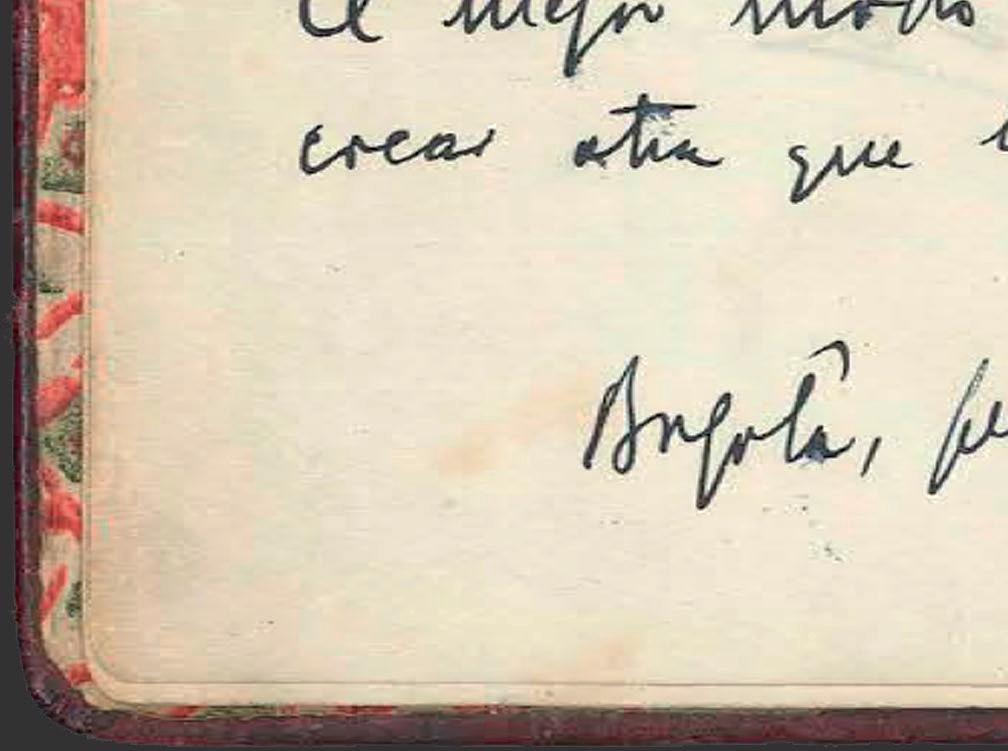 el mejor modo
crear otra que
Bogotá,